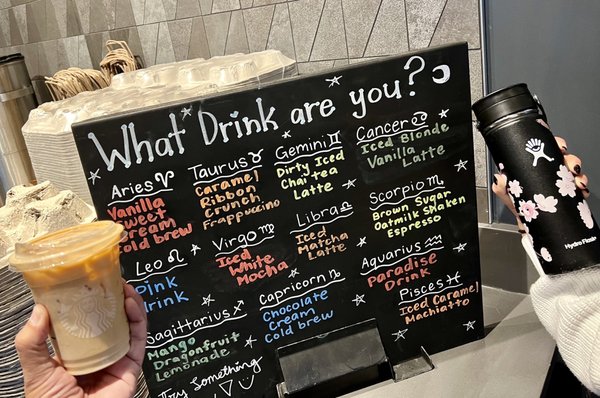 What Drink are you?
Aries ♈
Vanilla
sweet
cream
cold brew
Taurus ♉
Caramel
Ribbon
Crunch
Frappuccino
Gemini ♊
Dirty Iced
Chai tea
Latte
Cancer ♋
Iced Blonde
Vanilla Latte
Leo ♌
Pink
Drink
Virgo ♍
Iced
White
Mocha
Libra ♎
Iced
Matcha
Latte
Scorpio ♏
Brown Sugar
Oatmilk Shaken
Espresso
Sagittarius ♐
Mango
Dragonfruit
Lemonade
Capricorn ♑
Chocolate
Cream
Cold brew
Aquarius ♒
Paradise
Drink
Pisces ♓
Iced Caramel
Machiatto
Try Something
Hydro Flask